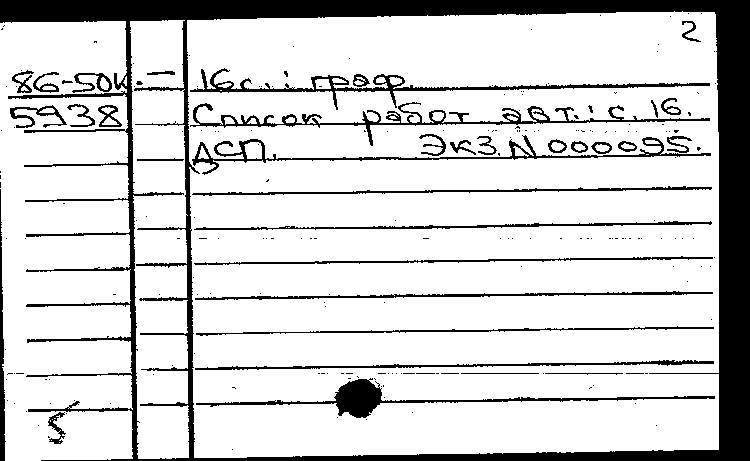 2
86-50к. — 16с.: граф.
5938 Список работ авт.: с. 16.
ДСП. Экз. N 000095.
5